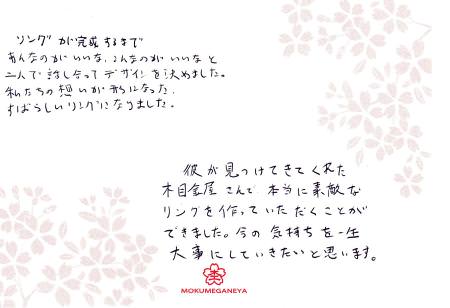 リングが完成するまで
あんなのがいいな、こんなのがいいなと
二人で話し合ってデザインを決めました。
私たちの想いが形になった、
すばらしいリングになりました。
彼が見つけてきてくれた
木目金屋さんで、本当に素敵な
リングを作っていただくことが
できました。今の気持ちを一生
大事にしていきたいと思います。
MOKUMEGANEYA